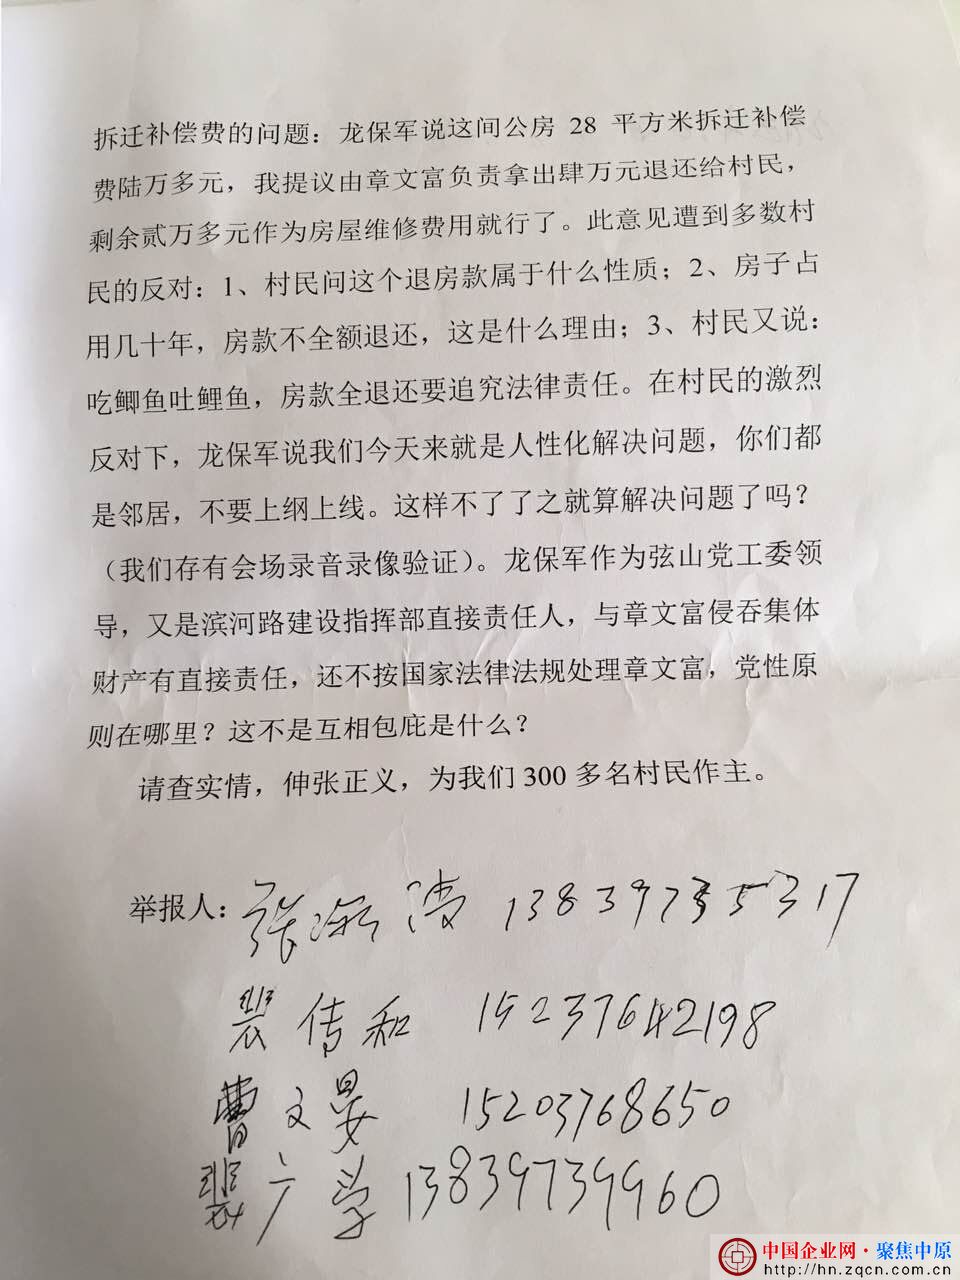 拆迁补偿费的问题：龙保军说这间公房 28 平方米拆迁补偿
费陆万多元，我提议由章文富负责拿出肆万元退还给村民，
剩余贰万多元作为房屋维修费用就行了。此意见遭到多数村
民的反对：1、村民问这个退房款属于什么性质；2、房子占
用几十年，房款不全额退还，这是什么理由；3、村民又说：
吃鲫鱼吐鲤鱼，房款全退还要追究法律责任。在村民的激烈
反对下，龙保军说我们今天来就是人性化解决问题，你们都
是邻居，不要上纲上线。这样不了了之就算解决问题了吗？
（我们存有会场录音录像验证）。龙保军作为弦山党工委领
导，又是滨河路建设指挥部直接责任人，与章文富侵吞集体
财产有直接责任，还不按国家法律法规处理章文富，党性原
则在哪里？这不是互相包庇是什么？
请查实情，伸张正义，为我们 300 多名村民作主。
举报人：张 13839735317
裴传和 15237642198
曹文晏 15203768650
裴广学 13839739960
中国企业网·聚焦中原
http://hn.zqcn.com.cn